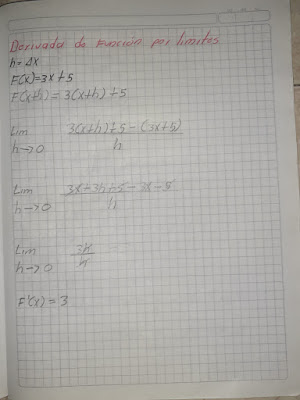 Derivada de Función por limites
h = Δx
F(x) = 3x + 5
F(x+h) = 3(x+h) + 5
Lim 3(x+h) + 5 - (3x+5)
h→0 h
Lim 3x + 3h + 5 - 3x - 5
h→0 h
Lim 3h
h→0 h
F'(x) = 3